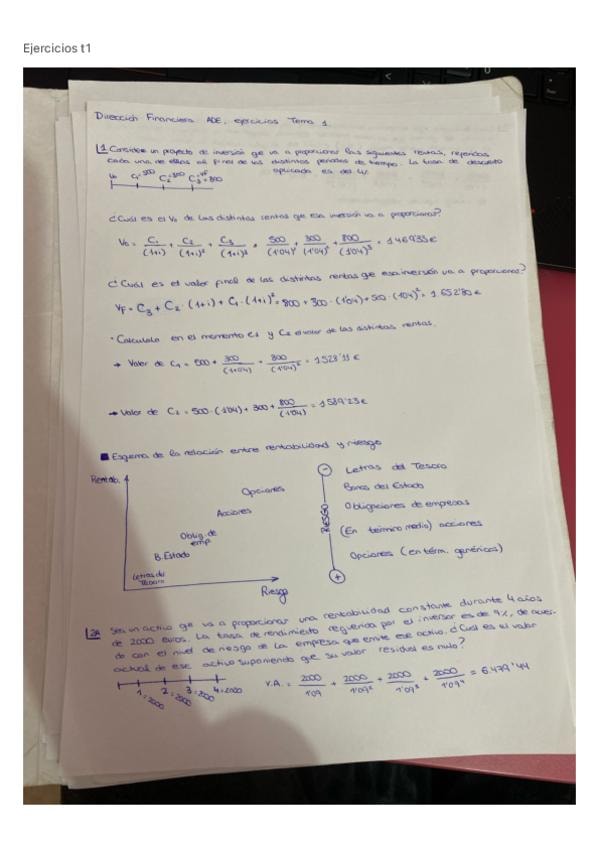 Ejercicios t1
Dirección Financiera ADE, ejercicios Tema 1.
1 Considere un proyecto de inversión qe va a proporcionar las siguientes rentas, repartidas
cada una de ellas al final de los distintos periodos de tiempo. La tasa de descuento
aplicada es del 4%
V₀ C₁=500 C₂=300 C₃=800
¿Cuál es el V₀ de las distintas rentas que esa inversión va a proporcionar?
V₀ = C₁/(1+i) + C₂/(1+i)² + C₃/(1+i)³ = 500/(1'04)¹ + 300/(1'04)² + 800/(1'04)³ = 1469'33€
¿Cuál es el valor final de las distintas rentas qe esa inversión va a proporcionar?
VF = C₃ + C₂ · (1+i) + C₁ · (1+i)² = 800 + 300 · (1'04) + 500 · (1'04)² = 1.652'80 €
· Calcúlalo en el momento C1 y C2 el valor de las distintas rentas.
→ Valor de C₁ = 500 + 300/(1+04) + 800/(1'04)² = 1528'11 €
→ Valor de C₂ = 500 · (1'04) + 300 + 800/(1'04) = 1589'23€
■ Esquema de la relación entre rentabilidad y riesgo
Rentab.
Opciones
Acciones
Oblig. de
emp.
B. Estado
Letras del
Tesoro
Riesgo
RIESGO
-
Letras del Tesoro
Bonos del Estado
Obligaciones de empresas
(En término medio) acciones
Opciones (en térm. genéricos)
+
2A Sea un activo qe va a proporcionar una rentabilidad constante durante 4 años
de 2000 euros. La tasa de rendimiento requerida por el inversor es de 9%, de acuer-
do con el nivel de riesgo de la empresa que emite ese activo. ¿Cuál es el valor
actual de ese activo suponiendo que su valor residual es nulo?
1=2000 2=2000 3=2000 4=2000
V.A. = 2000/1'09 + 2000/1'09² + 2000/1'09³ + 2000/1'09⁴ = 6.479'44